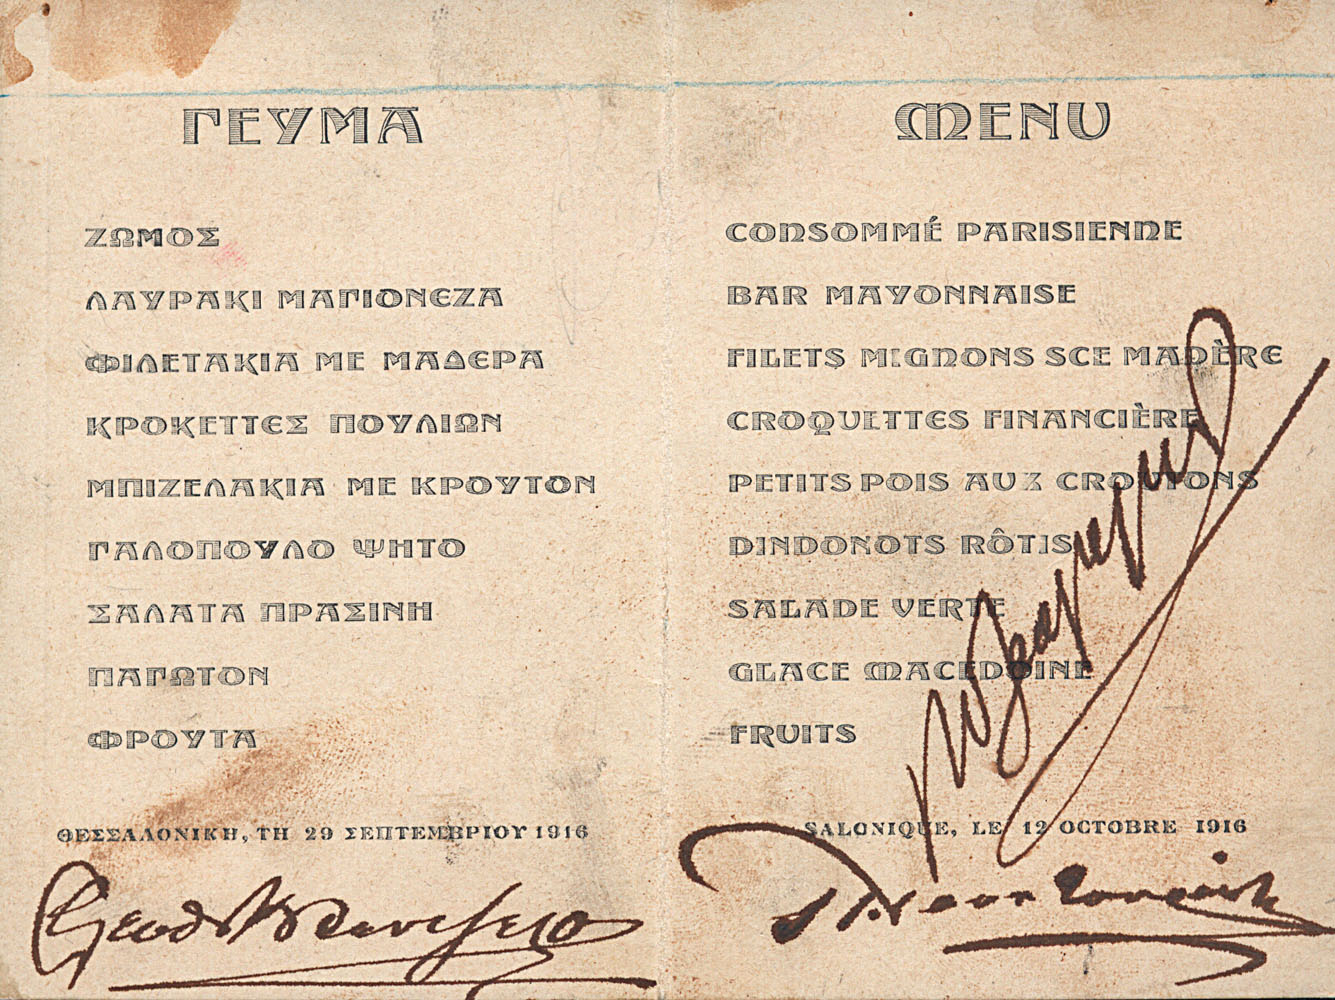 ΓΕΥΜΑ
ΖΩΜΟΣ
ΛΑΥΡΑΚΙ ΜΑΓΙΟΝΕΖΑ
ΦΙΛΕΤΑΚΙΑ ΜΕ ΜΑΔΕΡΑ
ΚΡΟΚΕΤΤΕΣ ΠΟΥΛΙΩΝ
ΜΠΙΖΕΛΑΚΙΑ ΜΕ ΚΡΟΥΤΟΝ
ΓΑΛΟΠΟΥΛΟ ΨΗΤΟ
ΣΑΛΑΤΑ ΠΡΑΣΙΝΗ
ΠΑΓΩΤΟΝ
ΦΡΟΥΤΑ
ΘΕΣΣΑΛΟΝΙΚΗ, ΤΗ 29 ΣΕΠΤΕΜΒΡΙΟΥ 1916
MENU
CONSOMMÉ PARISIENNE
BAR MAYONNAISE
FILETS MIGNONS SCE MADÈRE
CROQUETTES FINANCIÈRE
PETITS POIS AUX CROUTONS
DINDONOTS RÔTIS
SALADE VERTE
GLACE MACEDOINE
FRUITS
SALONIQUE, LE 12 OCTOBRE 1916